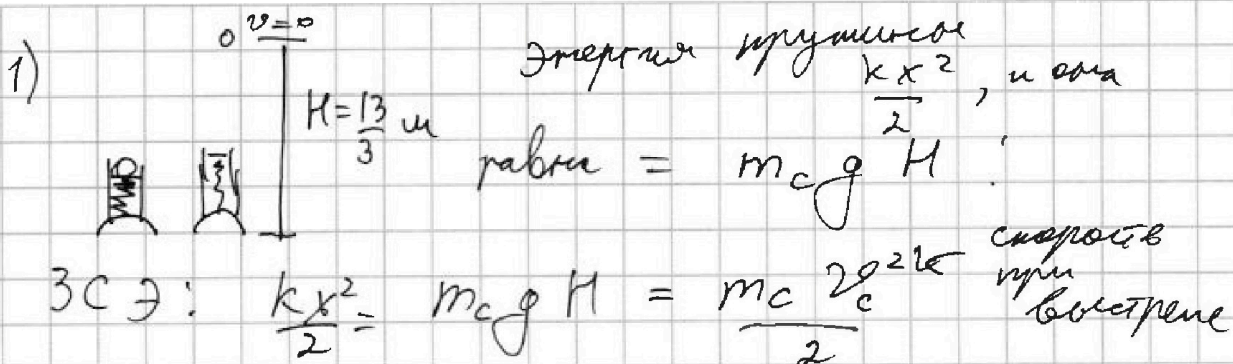 1) υ=0 Энергия пружины
H = 13/3 м kx²/2, и она
равна = m_c g H :
ЗСЭ: kx²/2 = m_c g H = m_c υ_c²/2 ← скорость при выстреле